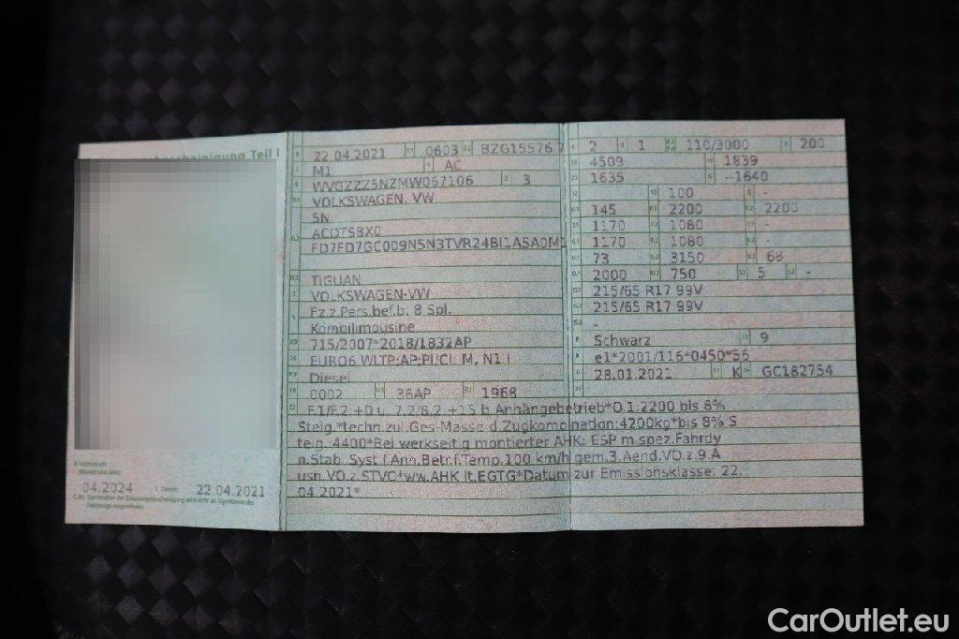 Teil I
04.2024 22.04.2021
22.04.2021 0603 BZG15576 7
M1 AC
WVGZZZ5NZMW057106 3
VOLKSWAGEN, VW
5N
ACDTSBX0
FD7FD7GC009N5N3TVR24BI1A5A0M1
TIGUAN
VOLKSWAGEN-VW
Fz.z.Pers.bef.b. 8 Spl.
Kombilimousine
715/2007*2018/1832AP
EURO6 WLTP;AP;PI/CI: M, N1 I
Diesel
0002 36AP 1968
2 1 110/3000 200
4509 1839
1635 --1640
100 -
145 2200 2200
1170 1080 -
1170 1080 -
73 3150 68
2000 750 5 -
215/65 R17 99V
215/65 R17 99V
-
Schwarz 9
e1*2001/116*0450*56
28.01.2021 K GC182754
F.1/F.2 +0 u. 7.2/8.2 +15 b. Anhängebetrieb*O.1:2200 bis 8%
Steig.*techn.zul.Ges-Masse d.Zugkombination:4200kg*bis 8% S
teig.:4400*Bei werkseitig montierter AHK: ESP m.spez.Fahrdy
n.Stab.Syst.f.Anh.Betr.f.Temp.100 km/h gem.3.Aend.VO.z.9.A
usn.VO.z.STVO*ww.AHK lt.EGTG*Datum zur Emissionsklasse: 22.
04.2021*
CarOutlet.eu